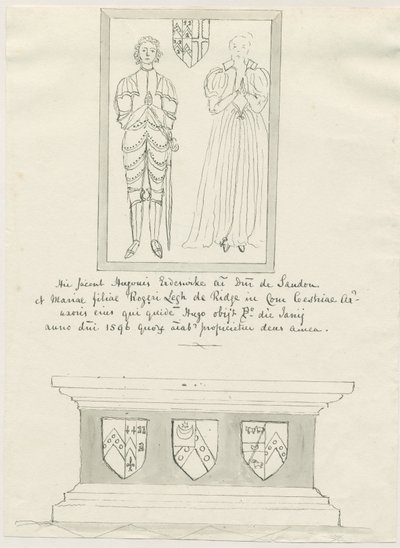 Hic jacent Hugonis Erdeswike Ar̃ Dñs de Sandon
et Mariae filiae Rogeri Legh de Ridge in Com Cestriae Ar̃
uxoris eius qui quidẽ Hugo obijt die Janij
anno dñi 1596 quorz aĩabz propicietur deus amen.